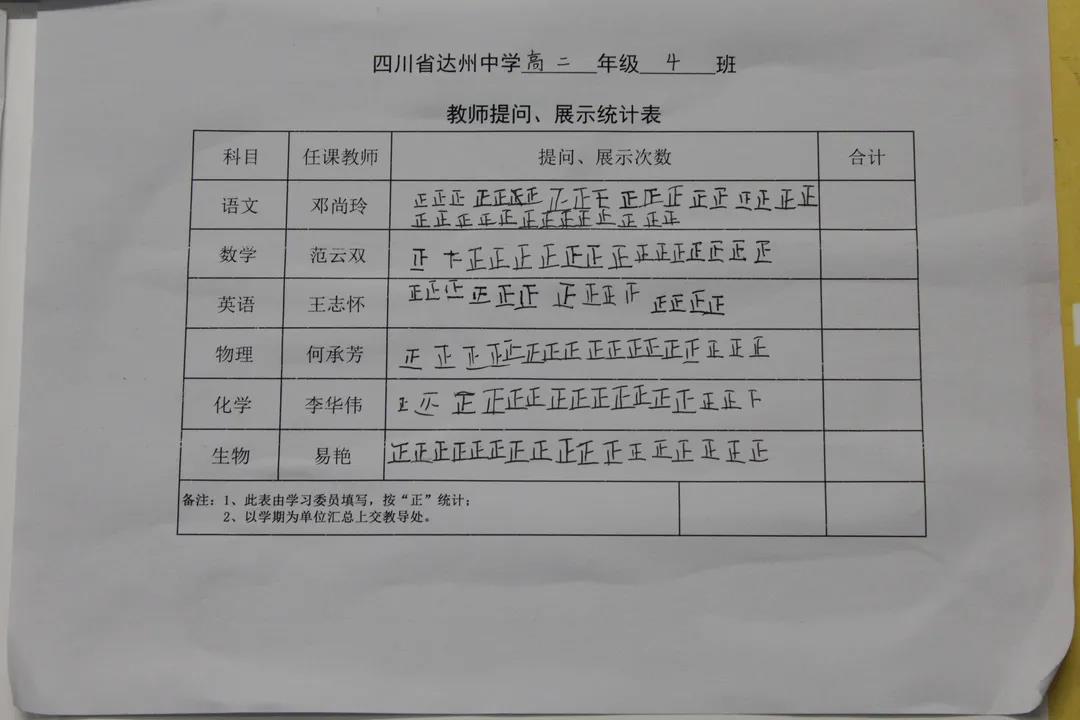 四川省达州中学高二年级4班
教师提问、展示统计表
科目 任课教师 提问、展示次数 合计
语文 邓尚玲 正正正正正正正正正正正正正正正正正正正正
正正正正正正正正正正正正正
数学 范云双 正 正正正正正正正正正正正正正正
英语 王志怀 正正正正正正正正正正正正正
物理 何承芳 正正正正正正正正正正正正正正正正
化学 李华伟 正正正正正正正正正正正正正正正
生物 易艳 正正正正正正正正正正正正正正正正正
备注：1、此表由学习委员填写，按“正”统计；
2、以学期为单位汇总上交教导处。